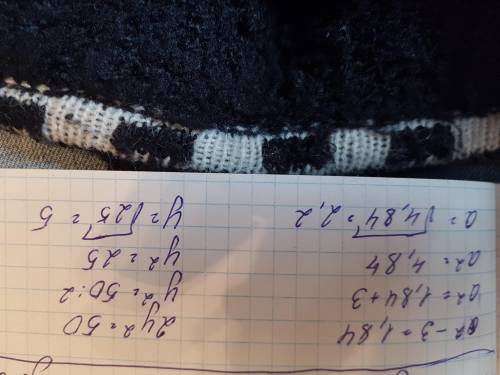 a² - 3 = 1,84
a² = 1,84 + 3
a² = 4,84
a = √4,84 = 2,2
2y² = 50
y² = 50 : 2
y² = 25
y = √25 = 5